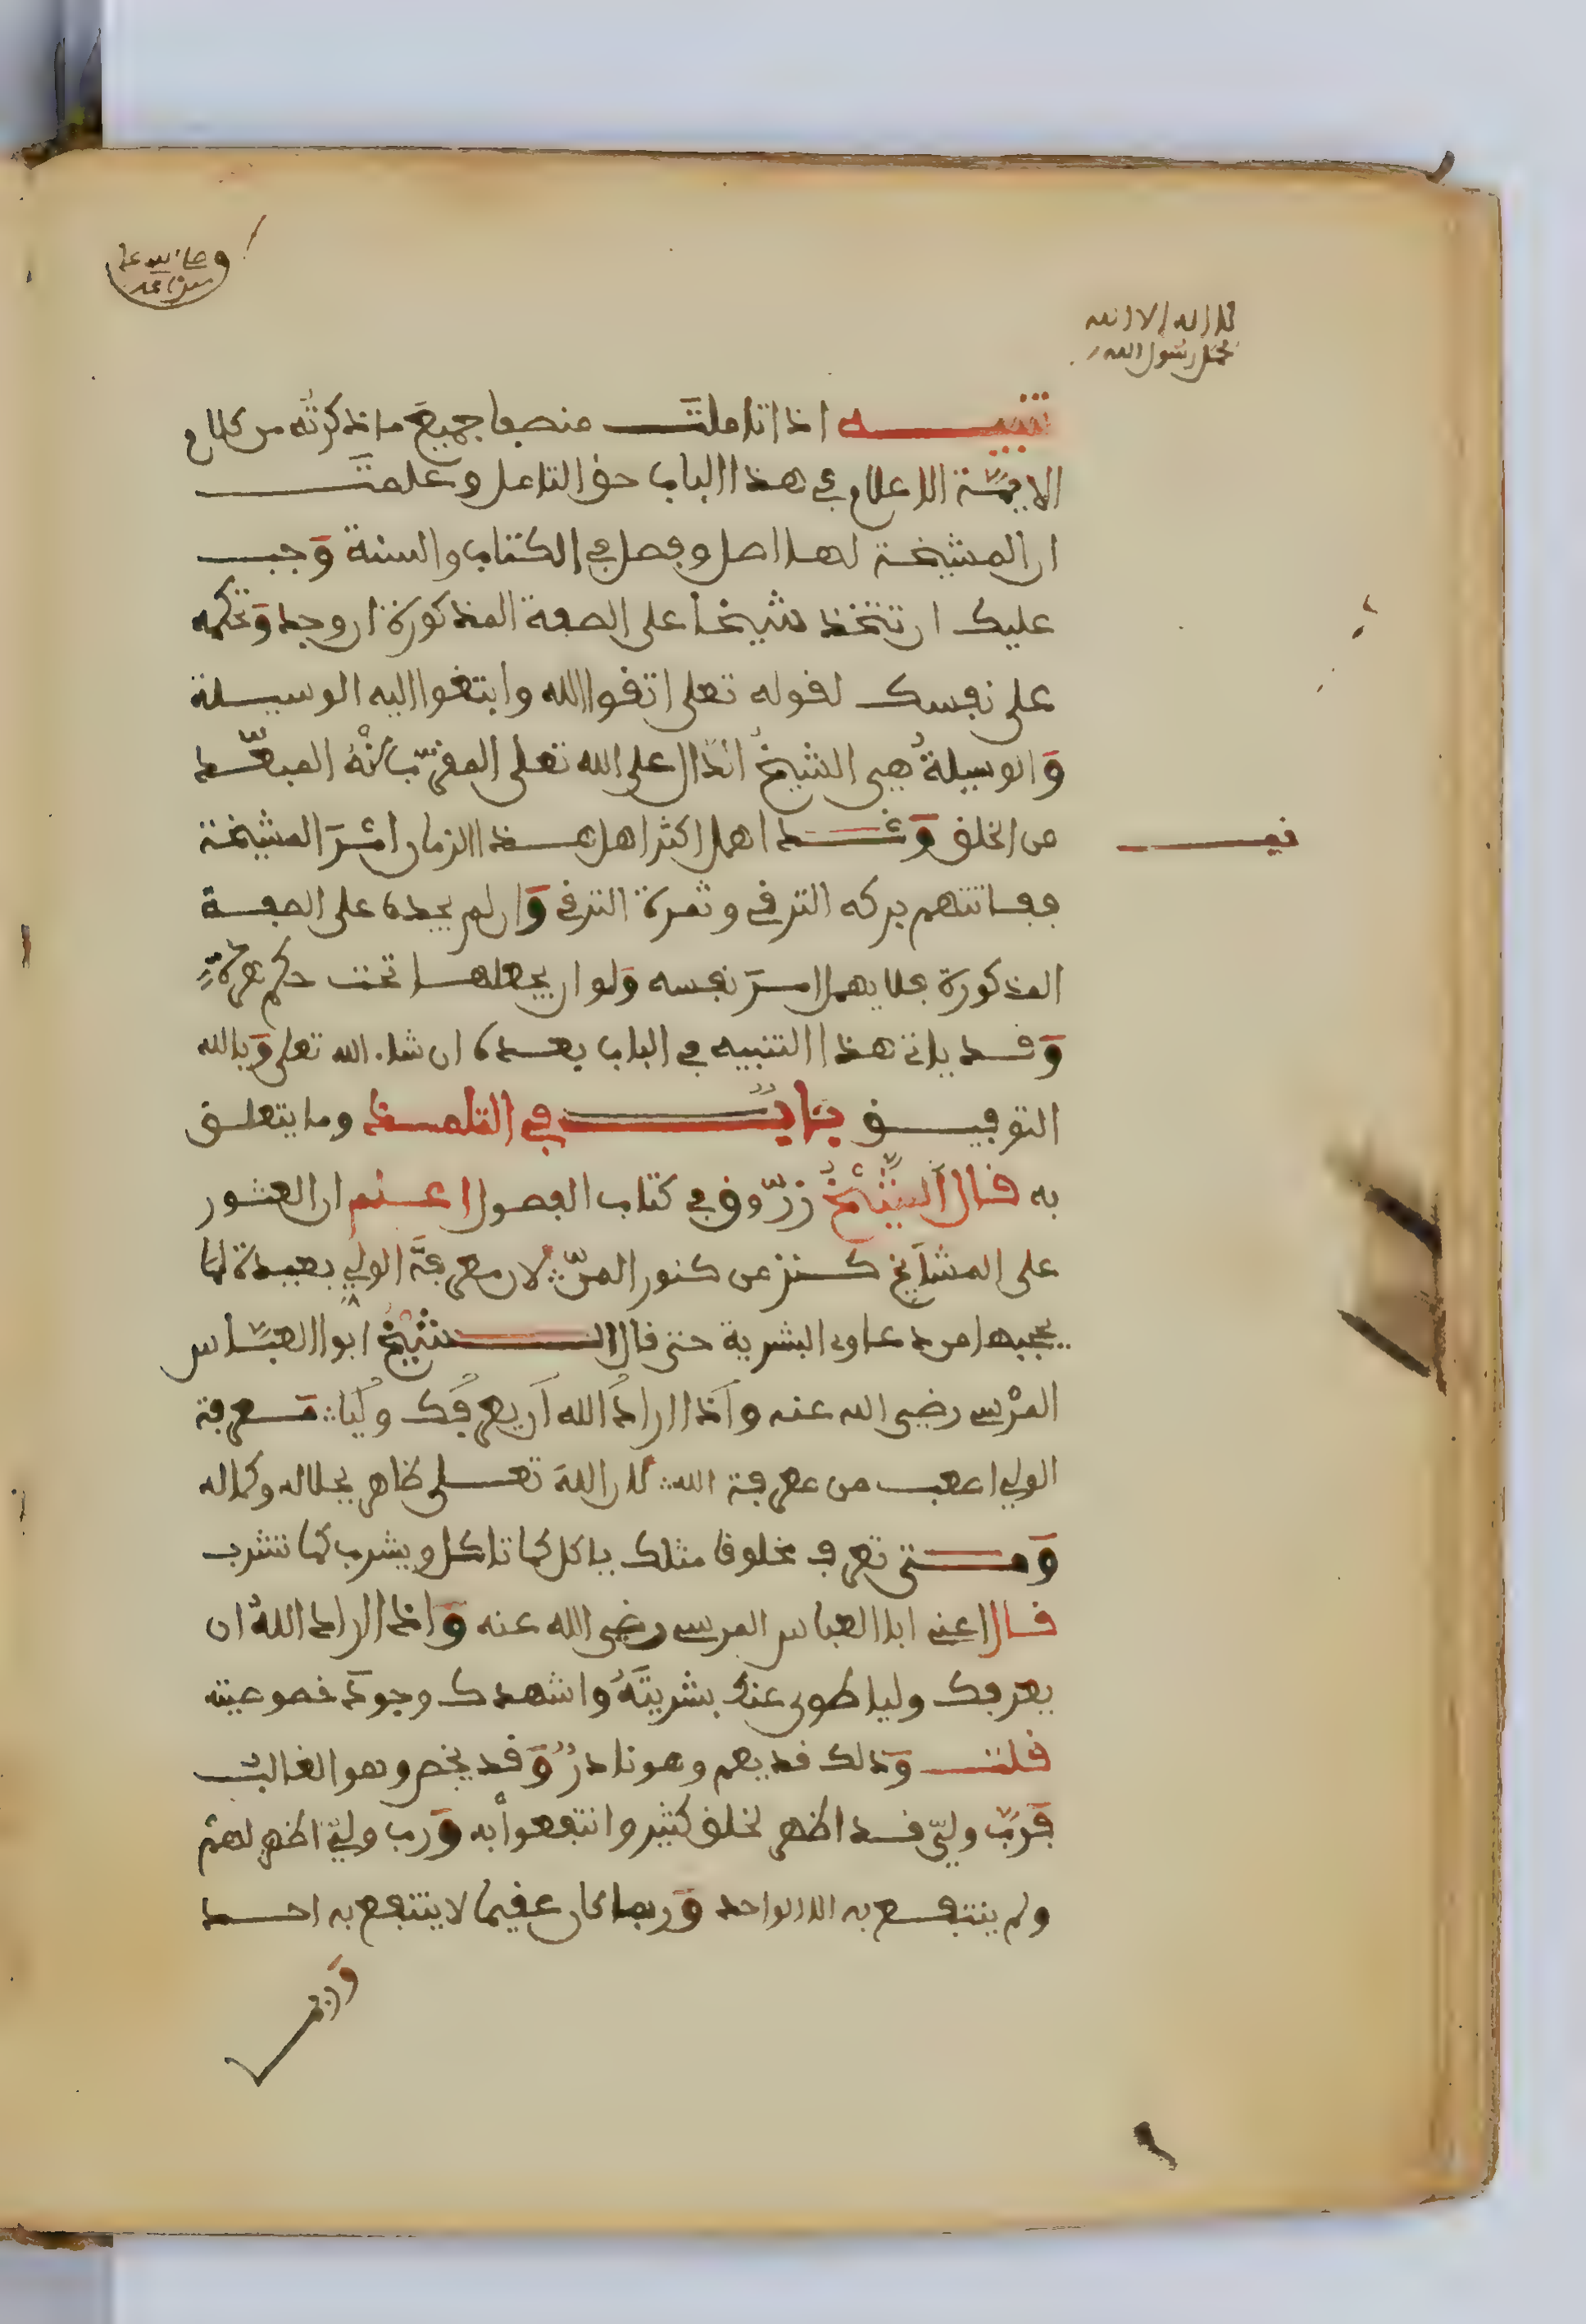 وصلى الله على
سيدنا محمد
لا اله الا الله
محمد رسول الله
تنبيه اذا تاملت منصفا جميع ما ذكرته من كلام
الايمة الاعلام في هذا الباب حق التامل وعلمت
ان المشيخة لها اصل وفصل في الكتاب والسنة وجب
عليك ان تتخذ شيخا على الصفة المذكورة ان وجد وتحكمه
على نفسك لقوله تعلى اتقوا الله وابتغوا اليه الوسيلة
والوسيلة هي الشيخ الدال على الله تعلى المقرب
من الخلق وقد اهمل اكثر اهل هذا الزمان امر المشيخة
ففاتتهم بركه الترقي وثمرة الترقي وان لم يجده على الصفة
المذكورة فلا يهمل امر نفسه ولو ان يجعلها تحت حكم
وقد ياتي هذا التنبيه في الباب بعده ان شاء الله تعلى وبالله
التوفيق باب في التلميذ وما يتعلق
به قال الشيخ زروق في كتاب الفصول اعلم ان العثور
على المشايخ كنز من كنوز لان معرفة الولي بعيدة لما
يحجبها من دعاوى البشرية حتى قال الشيخ ابوا العباس
المرسي رضي الله عنه واذا اراد الله ان يعرفك وليا معرفة
الولي اصعب من معرفة الله لان الله تعلى ظاهر بجلاله وكماله
ومتى تعرف مخلوقا مثلك ياكل كما تاكل ويشرب كما تشرب
قال اعني ابا العباس المرسي رضي الله عنه واذا اراد الله ان
يعرفك وليا طوى عنك بشريته واشهدك وجود خصوصيته
قلت وذلك قد يعم وهو نادر وقد يخص وهو الغالب
فرب ولي قد اظهر لخلق كثير وانتفعوا به ورب ولي اظهر لهم
ولم ينتفع به الا الواحد وربما كان عقيما لا ينتفع به احد